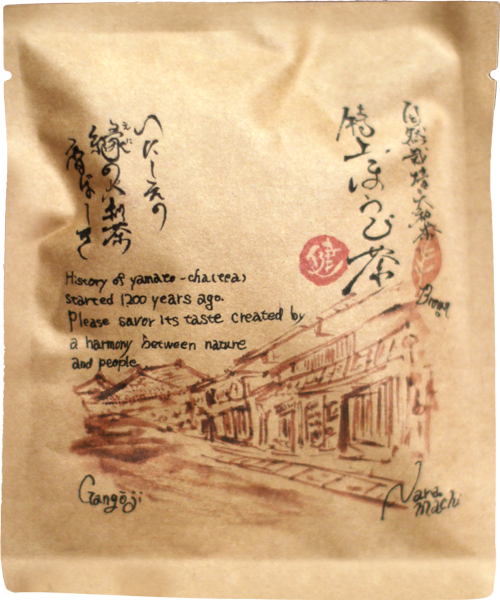 自然栽培大和茶
特上ほうじ茶
健
Brown
いにしえの
縁の大和茶
えにし
香ばしき
History of yamato-cha(tea)
started 1200 years ago.
Please savor its taste created by
a harmony between nature
and people
Gangōji
Nara
machi